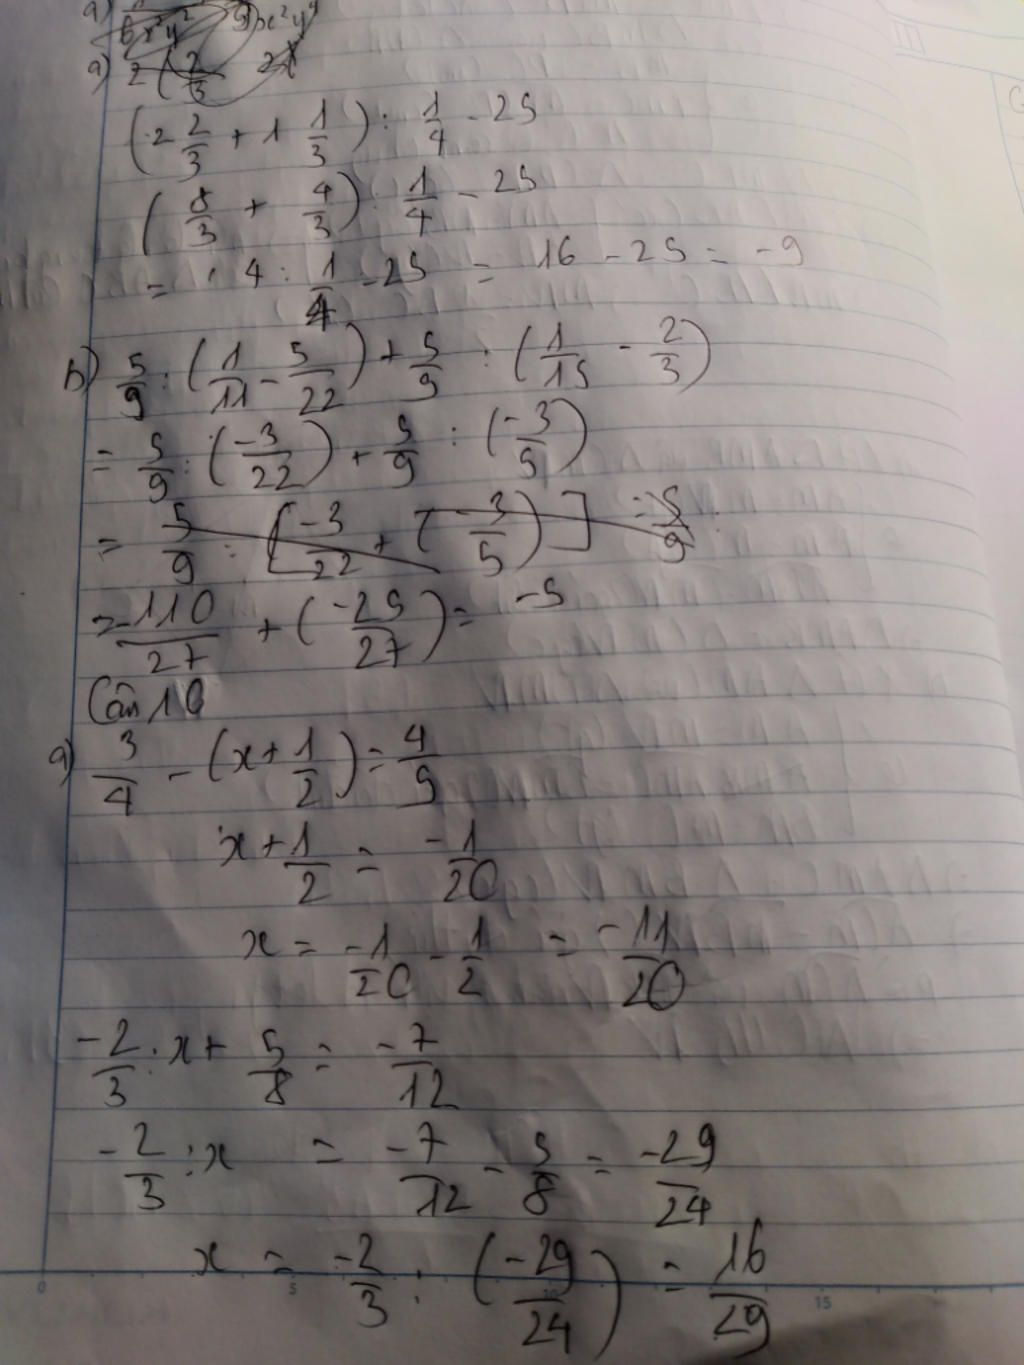 a) 6x²y² 5x²y⁴
a) 2(2/3 2x
(2 2/3 + 1 1/3) : 1/4 - 25
(8/3 + 4/3) : 1/4 - 25
= 4 : 1/4 - 25 = 16 - 25 = -9
b) 5/9 : (1/11 - 5/22) + 5/9 : (1/15 - 2/3)
= 5/9 : (-3/22) + 5/9 : (-3/5)
= 5/9 : [-3/22 + (-3/5)] = 5/9 :
= -110/27 + (-25/27) = -5
Câu 16
a) 3/4 - (x + 1/2) = 4/5
x + 1/2 = -1/20
x = -1/20 - 1/2 = -11/20
-2/3 : x + 5/8 = -7/12
-2/3 : x = -7/12 - 5/8 = -29/24
x = -2/3 : (-29/24) = 16/29
0 5 10 15